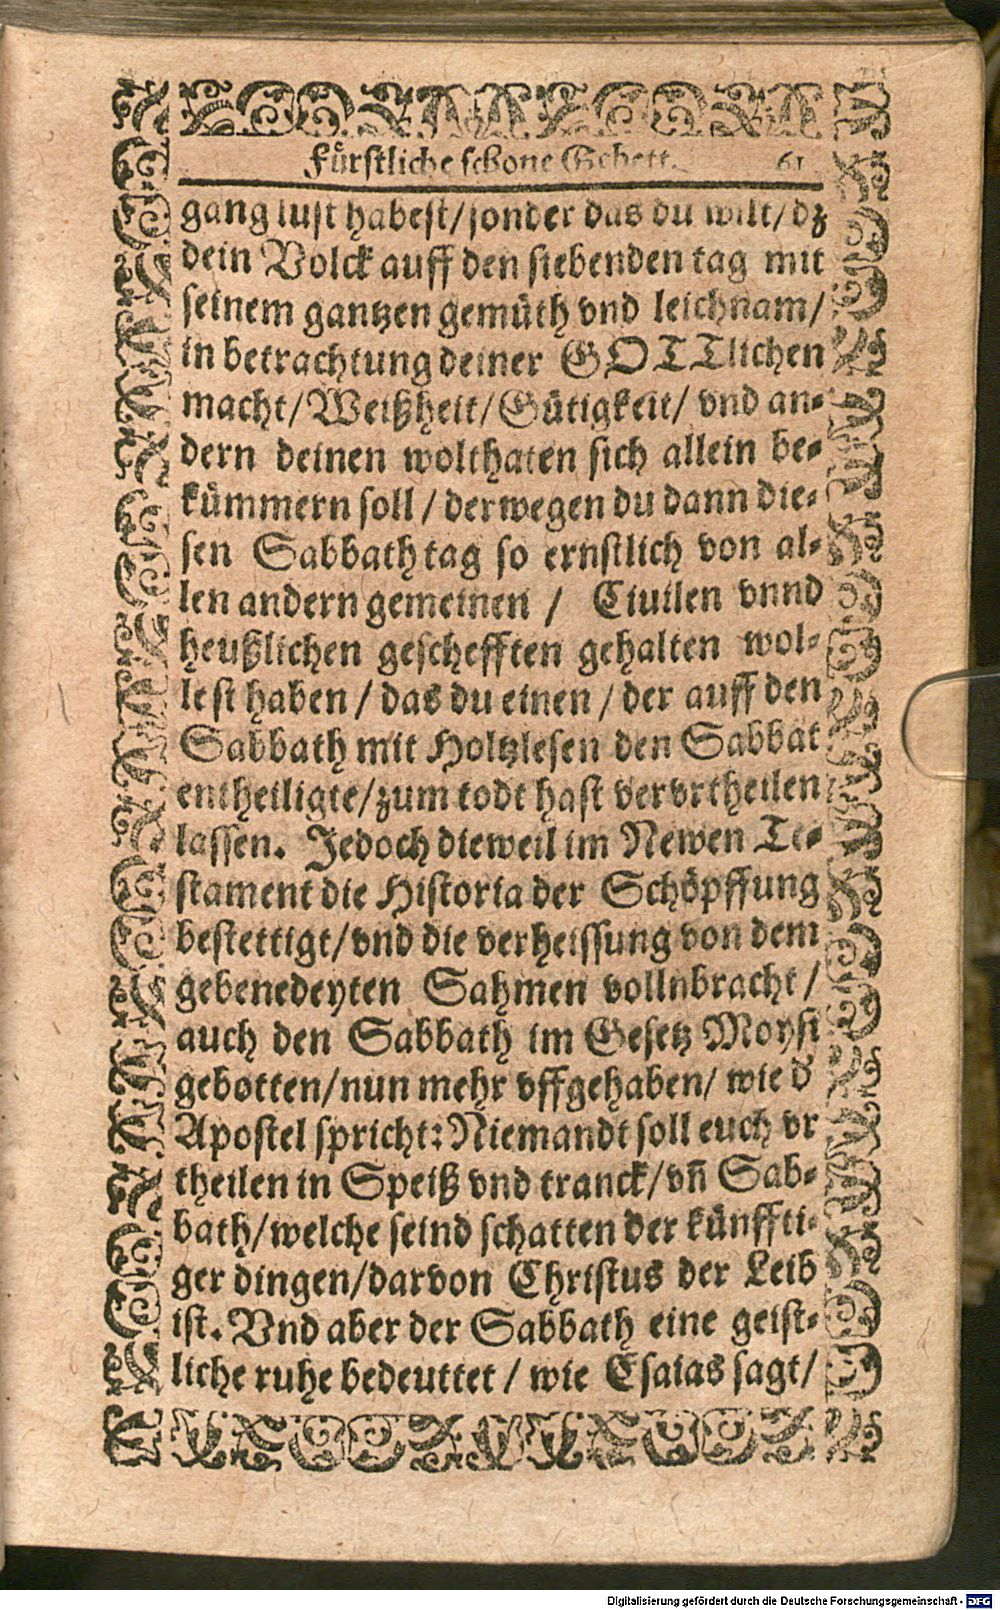 Fürstliche schöne Gebett. 61
gang lust habest/sonder das du wilt/dz
dein Volck auff den siebenden tag mit
seinem gantzen gemüth vnd leichnam/
in betrachtung deiner GOTTlichen
macht/Weißheit/Gütigkeit/ vnd an⸗
dern deinen wolthaten sich allein be⸗
kümmern soll/derwegen du dann die⸗
sen Sabbath tag so ernstlich von al⸗
len andern gemeinen / Ciuilen vnnd
heußlichen geschefften gehalten wol⸗
lest haben/das du einen/der auff den
Sabbath mit Holtzlesen den Sabbat
entheiligte/zum todt hast vervrtheilen
lassen. Jedoch dieweil im Newen Te⸗
stament die Historia der Schöpffung
bestettigt/vnd die verheissung von dem
gebenedeyten Sahmen vollnbracht/
auch den Sabbath im Gesetz Moysi
gebotten/nun mehr vffgehaben/ wie d̕
Apostel spricht: Niemandt soll euch vr
theilen in Speiß vnd tranck/vn̄ Sab⸗
bath/welche seind schatten der künffti⸗
ger dingen/darvon Christus der Leib
ist. Vnd aber der Sabbath eine geist⸗
liche ruhe bedeuttet/ wie Esaias sagt/
Digitalisierung gefördert durch die Deutsche Forschungsgemeinschaft - DFG